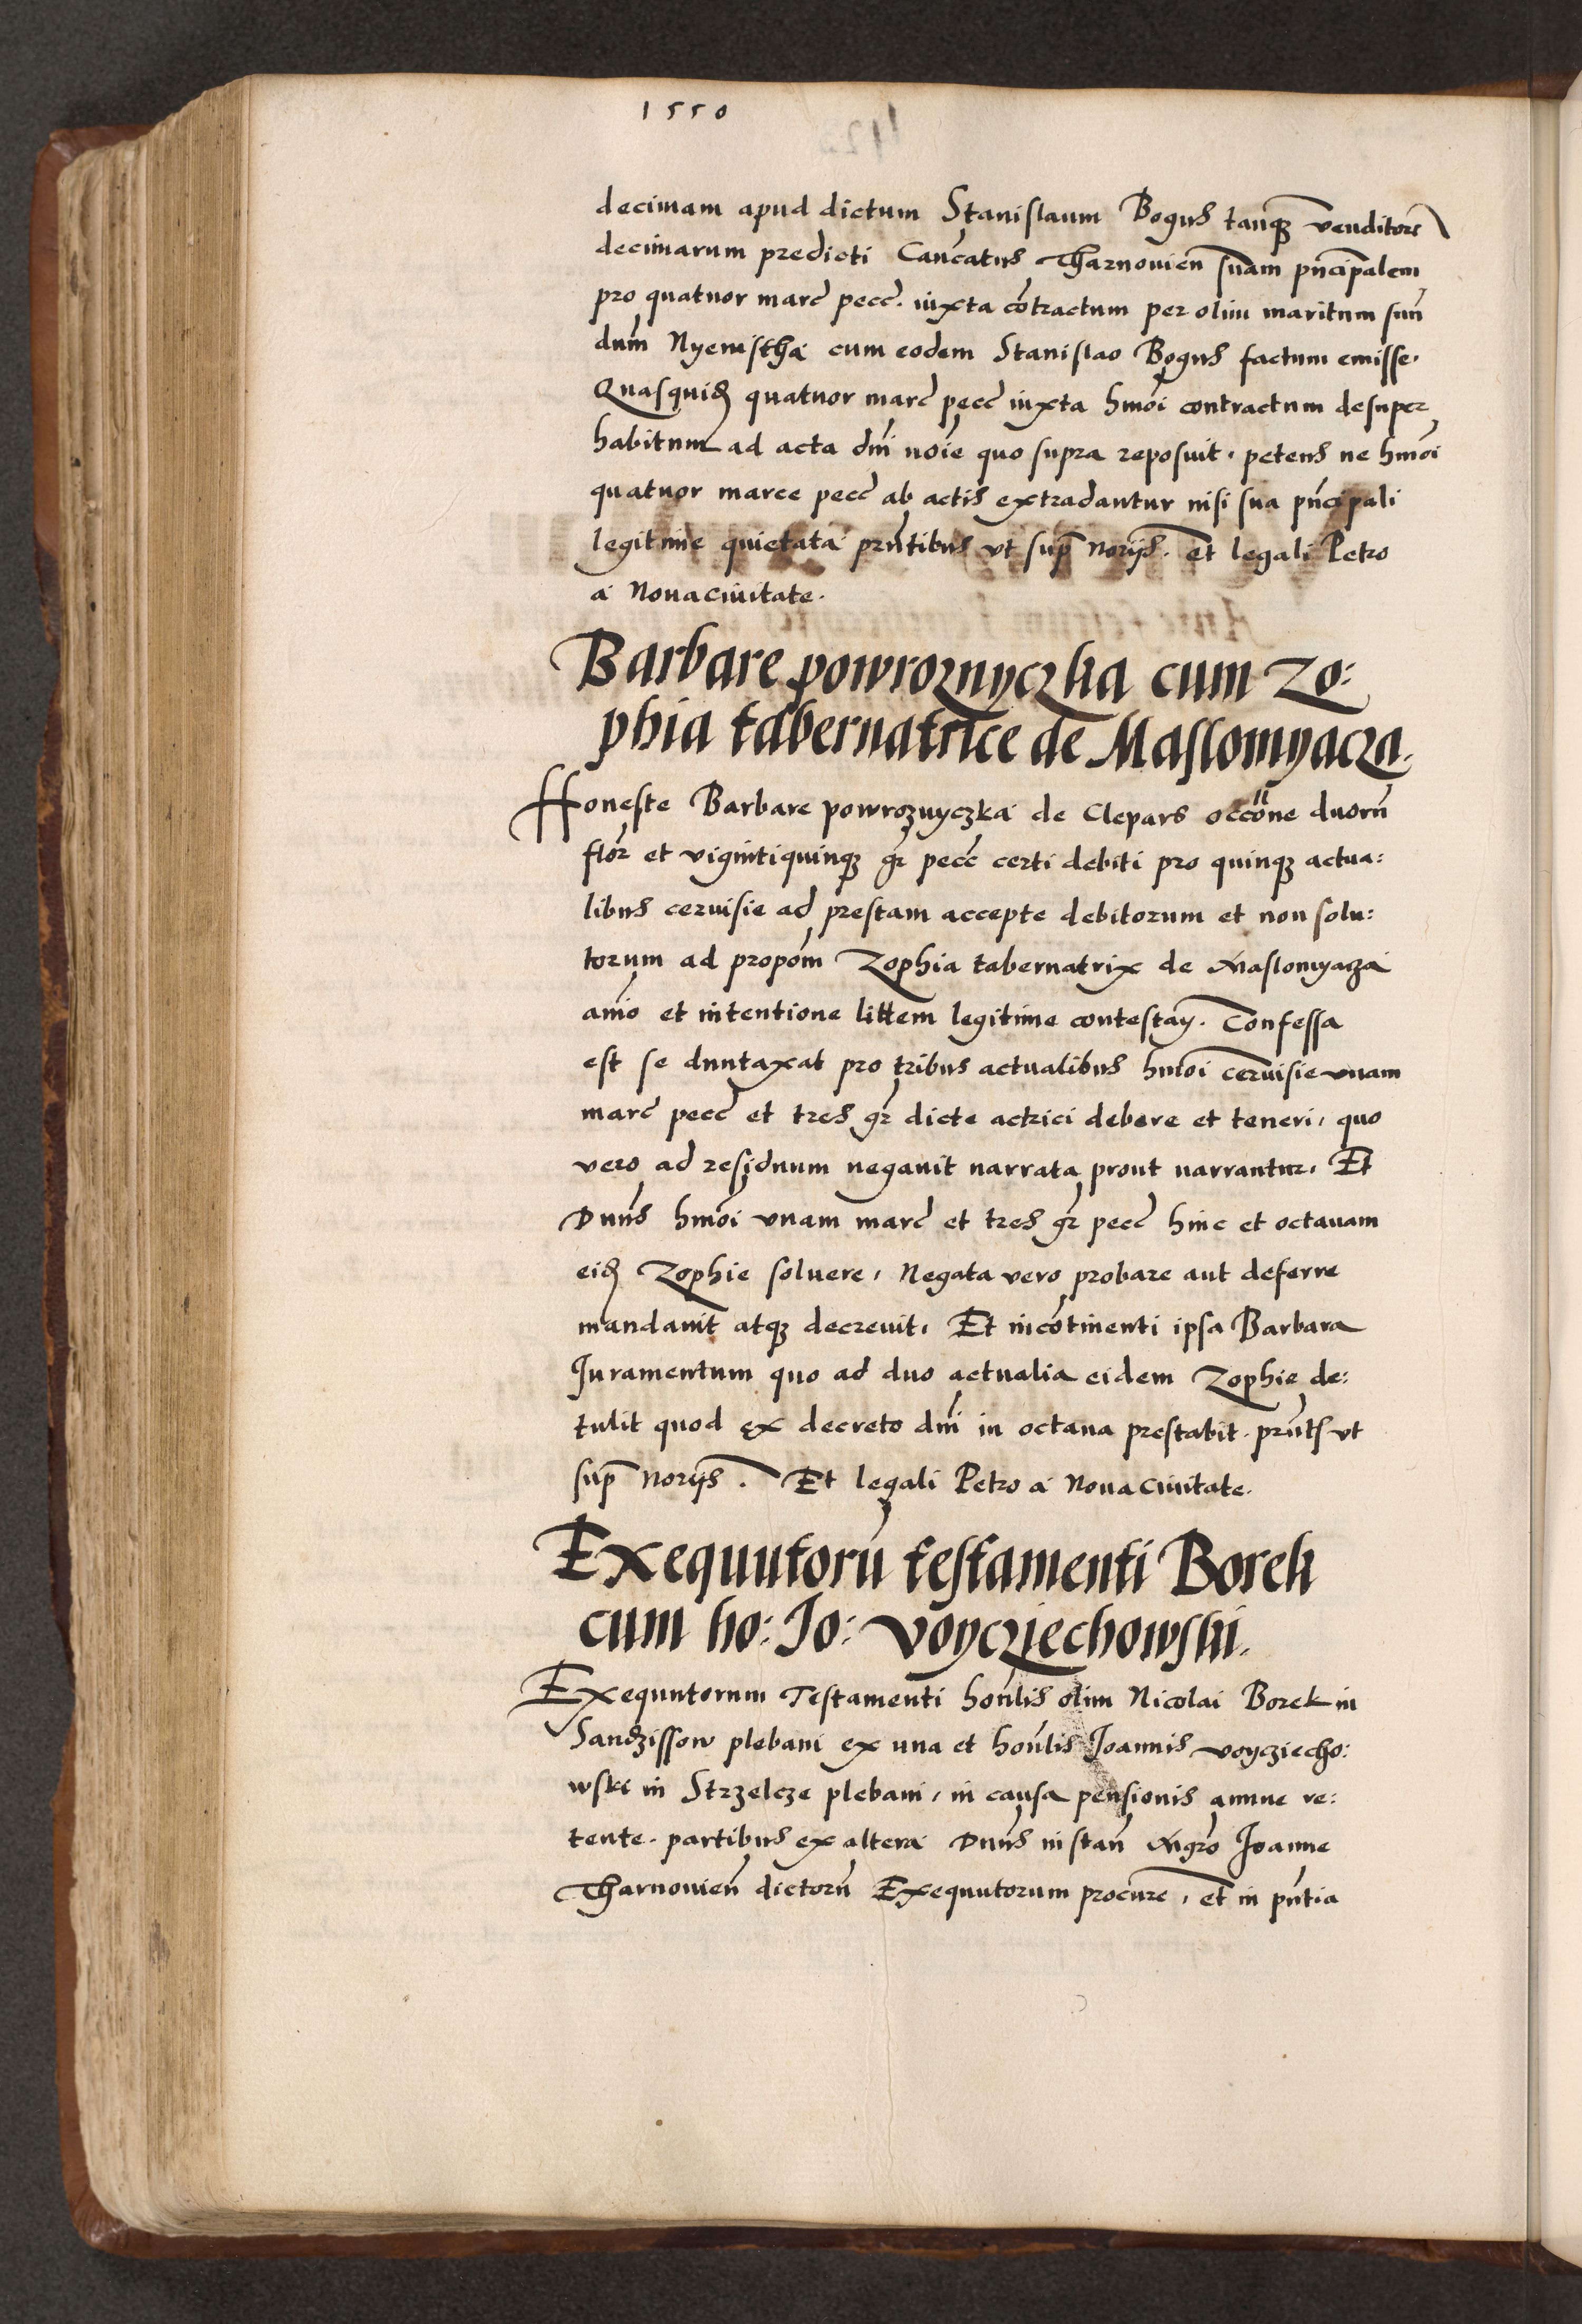 1550
decimam apud dictum Stanislaum Bogus tanq̃ȝ venditorẽ
decimarum predicti Canc̃atus Tharnovien̄ suam pn̄cipalem
pro quatuor marc̃ pecc̃. iuxta cõtractum per olim maritum suũ
dum̃ Nyemstha cum eodem Stanislao Bogus factum emisse.
Quasquid̃ quatuor marc̃ pecc̃ iuxta hmõi contractum desuper
habitum ad acta dm̃i noĩe quo supra reposuit. petens ne hmõi
quatuor marce pecc̃ ab actis extradantur nisi sua pñcipali
legitime quietata pñtibus vt sup̃ noriĩs. et legali Petro
a Nouaciuitate.
Barbare powroznyczka cum Zo:
phia tabernatrice de Maslomyacza.
Honeste Barbare powroznyczka de Clepars occõne duorũ
flor̃ et vigintiquinqȝ gr̃ pecc̃ certi debiti pro quinqȝ actua:
libus ceruisie ad prestam accepte debitorum et non solu:
torum ad propõm Zophia tabernatrix de Maslomyacza
aĩo et intentione littem legitime contestan̄. Confessa
est se duntaxat pro tribus actualibus hmõi ceruisie vnam
marc̃ pecc̃ et tres gr̃ dicte actrici debere et teneri, quo
vero ad residuum negauit narrata prout narrantur. Et
Dñns hmõi vnam marc̃ et tres gr̃ pecc̃ hinc et octauam
eid̃ Zophie soluere, Negata vero probare aut deferre
mandauit atqȝ decreuit. Et incõtinenti ipsa Barbara
Juramentum quo ad duo actualia eidem Zophie de:
tulit quod ex decreto dm̃i in octaua prestabit. pñts vt
sup̃ noriĩs. Et legali Petro a Noua Ciuitate.
Exequutorũ testamenti Borek
cum ho: Jo: Voycziechowski.
Exequutorum Testamenti honl̃is olim Nicolai Borek in
Sandzissow plebani ex una et honl̃is Joannis voycziecho:
wski in Strzelcze plebani, in causa pensionis annue re:
tente. partibus ex altera Dñns instan̄ Mgr̃o Joanne
Tharnouien̄ dictorũ Exequutorum procure, et in pñtia